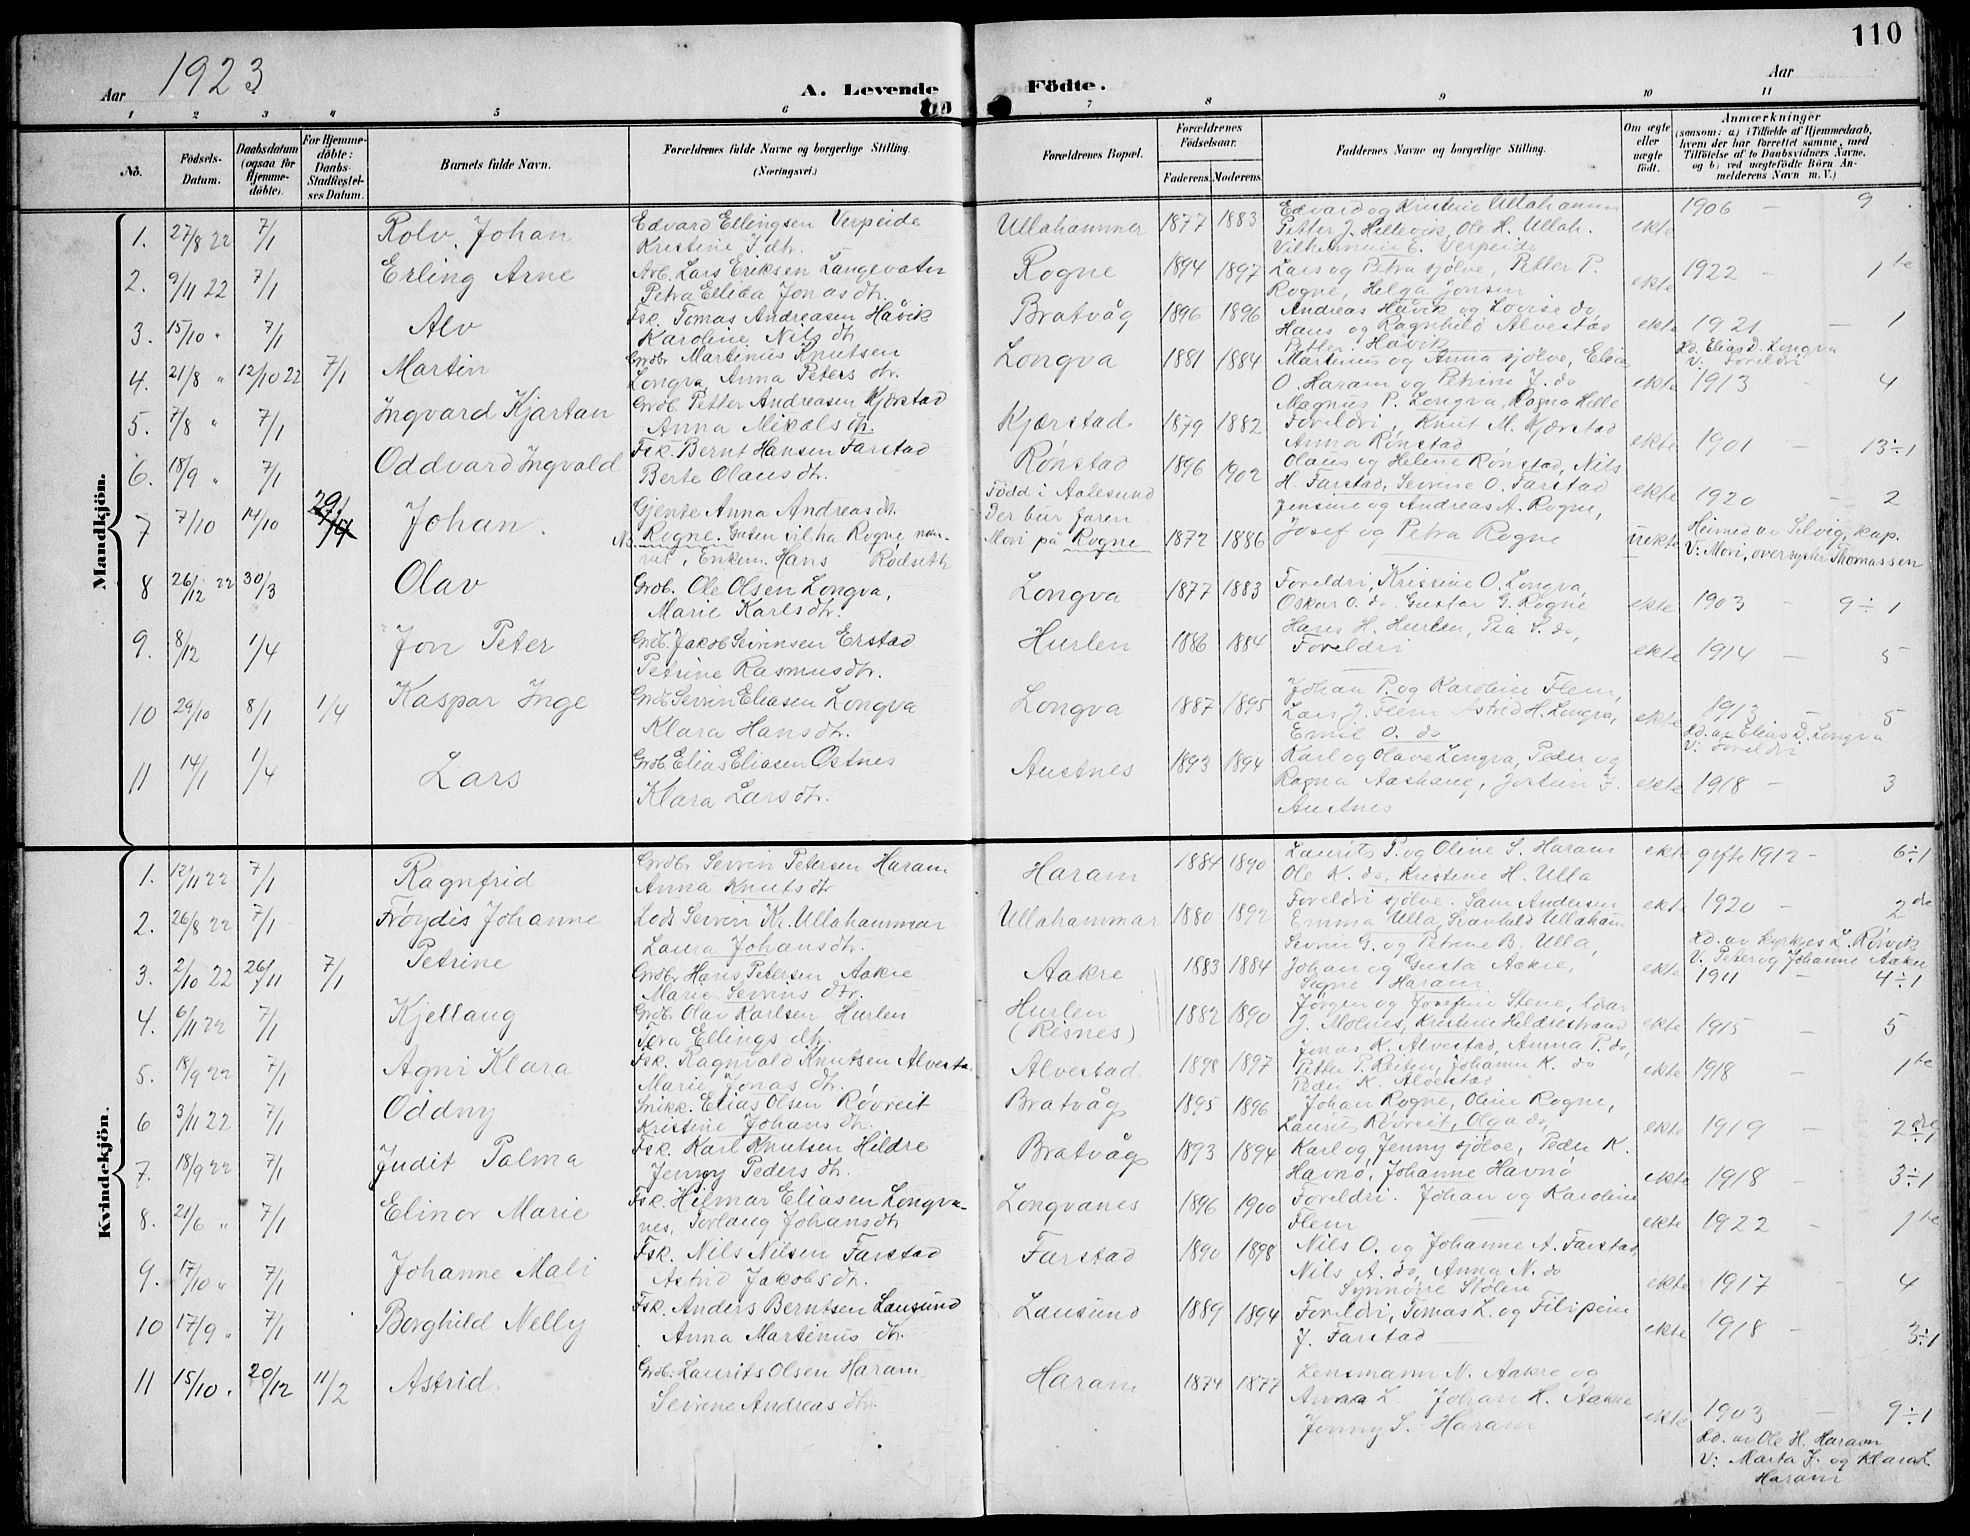 110
Aar 1923
A. Levende Födte.
Aar
1 2 3 4 5 6 7 8 9 10 11
No. Födsels-Datum. Daabsdatum (ogsaa for Hjemmedöbte). For Hjemmedöbte: Daabs-Stadfæstelses Datum. Barnets fulde Navn. Forældrenes fulde Navne og borgerlige Stilling. (Næringsvei.) Forældrenes Bopæl. Forældrenes Födselsaar. Faderens. Moderens. Faddernes Navne og borgerlige Stilling. Om ægte eller uægte födt. Anmærkninger (saasom: a) i Tilfælde af Hjemmedaab, hvem der har forrettet samme, med Tilföielse af to Daabsvidners Navne. og b) ved uægtefödte Börn Anmelderens Navn m. V.)
Mandkjön.
1. 27/8 22 7/1 Rolv Johan Edvard Ellingsen Verpeide Kristine J. dtr. Ullahammer 1877 1883 Edvard og Kristine Ullahamm Petter J. Hellevik, Ole H. Ullah. Vilhelmine E. Verpeide ekte 1906 - 9
2. 9/11 22 7/1 Erling Arne Arb. Lars Eriksen Langevatn Petra Ellida Jonasdtr. Rogne 1894 1897 Lars og Petra sjölve, Petter P. Rogne, Helga Jonsen ekte 1922 - 1te
3. 15/10 " 7/1 Alv Fsk. Tomas Andreasen Håvik Karoline Nilsdtr. Bratvåg 1896 1896 Andreas Håvik og Lovise do, Hans og Ragnhild Alvestad Petter Håvik ekte 1921 - 1
4. 21/8 " 12/10 22 7/1 Martin Grdb. Martinus Knutsen Longva, Anna Peters dtr. Longva 1881 1884 Martinus og Anna sjölve, Elias O. Haram og Petrine J. do Magnus P. Longva, Ragna Helle ekte Hd. Elias D. Longva V. Foreldri 1913 - 4
5. 7/8 " 7/1 Ingvard Kjartan Grdb. Petter Andreasen Kjærstad Anna Mikalsdtr. Kjærstad 1879 1882 Foreldri, Knut M. Kjærstad Anna Rønstad ekte 1901 - 13÷1
6. 18/9 " 7/1 Oddvard Ingvald Fsk. Bernt Hansen Farstad Berte Olausdtr. Rønstad 1896 1902 Olaus og Heline Rønstad, Nils H. Farstad, Sevrine O. Farstad ekte 1920 - 2
7 7/10 14/10 29/4 Johan Gjente Anna Andreasdtr. Rogne. Guten vil ha Rogne namnet, Enkem. Hans Rødseth Född i Aalesund Der bur faren Mori på Rogne 1872 1886 Jensine og Andreas A. Rogne, Josef og Petra Rogne uekte Heimed. av Selvig, kap. V: Mori, oversyster Thomassen
8 26/12 22 30/3 Olav Grdb. Ole Olsen Longva, Marie Karlsdtr. Longva 1877 1883 Foreldri, Kristine O. Longva, Oskar O. do Gustav G. Rogne ekte 1903 - 9÷1
9. 8/12 1/4 Jon Peter Grdb. Jakob Sevrinsen Erstad Petrine Rasmusdtr. Hurlen 1886 1884 Hans H. Hurlen, Pea S. do, Foreldri ekte 1914 - 5
10 29/10 8/1 1/4 Kaspar Inge Grdb. Sevrin Eliasen Longva Klara Hansdtr. Longva 1887 1895 Johan P. og Karoline Flem, Lars J. Flem Astrid H. Longva, Emil O. do ekte 1913 - 5 Hd. av Elias D. Longva V: Foreldri
11 14/1 1/4 Lars Grdb. Elias Eliasen Ostnes Klara Larsdtr. Austnes 1893 1894 Karl og Olave Longva, Peder og Ragna Aashaug, Jostein J. Austnes ekte 1918 - 3
Kvindekjön.
1. 12/11 22 7/1 Ragnfrid Grdbr Sevrin Petersen Haram Anna Knutsdtr Haram 1884 1890 Laurits P. og Oline S. Haram Ole K. do, Kristine H. Ulla ekte gifte 1912 - 6÷1
2. 26/8 22 7/1 Frøydis Johanne Sevrin Kr. Ullahammar Laura Johansdtr. Ullahammar 1880 1892 Foreldri sjölve. Sam Andersen Emma Ulla, Ullaham Sevrin G. og Petrine B. Ulla, ekte 1920 - 2dre
3. 2/10 22 26/11 7/1 Petrine Grdbr Hans Petersen Aakre Marie Sevrins dtr. Aakre 1883 1884 Johan og Gusta Aakre, Signe Haram ekte Hd. av kyrkjes. L. Rörvik V. Peter og Johanne Aakre 1911 - 4÷1
4. 6/11 22 7/1 Kjellaug Grdb. Olav Karlsen Hurlen Tora Ellings dtr. Hurlen (Risnes) 1882 1890 Jörgen og Josefine Stene, Ivar J. Molnes, Kristine Hildrestrand ekte 1915 - 5
5. 19/9 22 7/1 Agni Klara Fsk. Ragnvald Knutsen Alvesta Marie Jonas dtr. Alvestad 1898 1897 Jonas K. Alvestad, Anna P. do, Petter P. Reiten, Johanne K. do Peder K. Alvestad ekte 1918 - 1te
6 3/11 22 7/1 Oddny Snikk. Elias Olsen Røvreit Kristine Johansdtr. Bratvåg 1895 1896 Johan Rogne, Oline Rogne, Laurits Røvreit, Olga do, ekte 1919 - 2dre ÷1
7. 18/9 22 7/1 Judit Palma Fsk. Karl Knutsen Hildre Jenny Pedersdtr. Bratvåg 1893 1894 Karl og Jenny sjölve, Peder K. Havnö, Johanne Havnö ekte 1918 - 3÷1
8. 21/6 " 7/1 Elinor Marie Fsk. Hilmar Eliasen Longvanes, Torlaug Johansdtr Longvanes 1896 1900 Foreldri. Johan og Karoline Flem ekte 1922 - 1te
9. 17/10 " 7/1 Johanne Mali Fsk. Nils Nilsen Farstad Astrid Jakobsdtr. Farstad 1890 1898 Nils O. og Johanne A. Farstad, Nils A. do, Anna N. do Synnøve Stølen ekte 1917 - 4
10 17/9 " 7/1 Borghild Nelly Fsk. Anders Berntsen Lausund Anna Martinus dtr. Lausund 1889 1894 Foreldri, Tomas L. og Filipine J. Farstad ekte 1918 - 3÷1
11 15/10 " 20/12 11/2 Astrid Grdb. Laurits Olsen Haram Sevrine Andreasdtr. Haram 1874 1877 Lensmann N. Aakre og Anna L. Johan H. Aakre Jenny S. Haram ekte 1903 - 9÷1 Hd. av Ole H. Haram V: Marta J. og Klara L. Haram